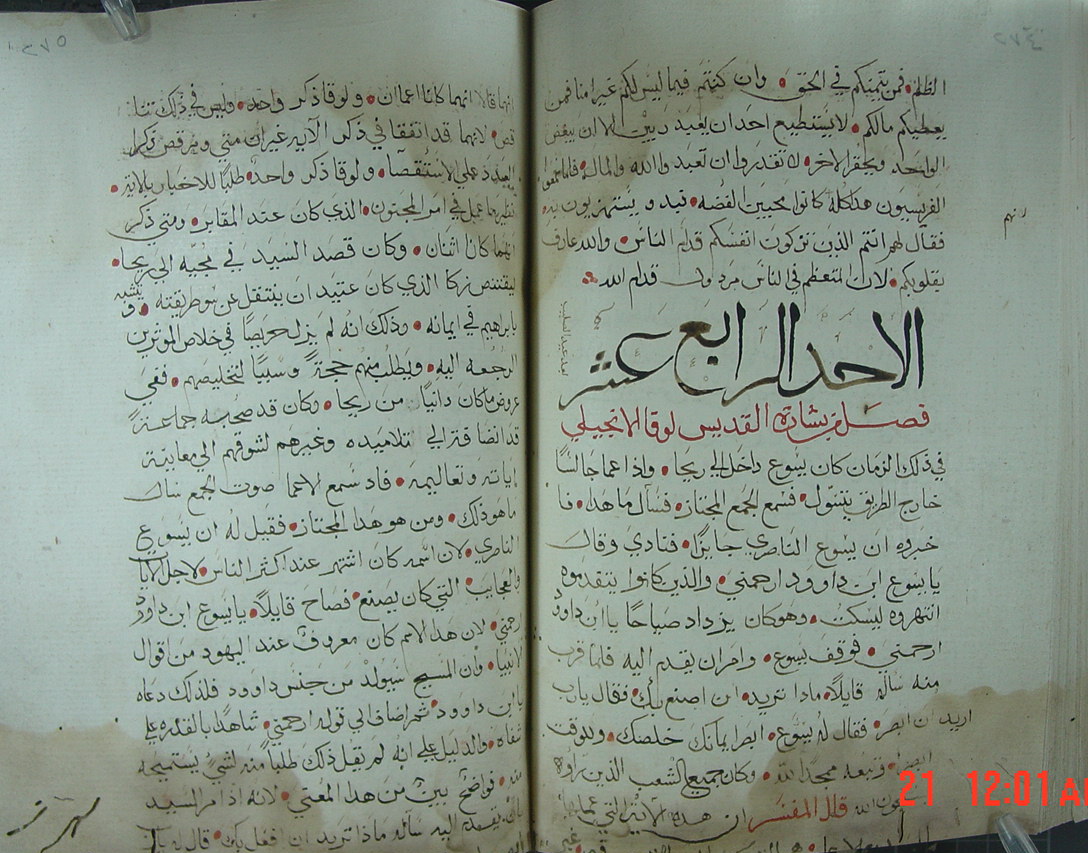 الظلم • فمن يتمنكم في الحق • وان كنتم فيما ليس لكم غير امنا فمن
يعطيكم مالكم • لا يستطيع احد ان يعبد ربين الا ان يبغض
الواحد ويحقر الاخر • لا تقدروا ان تعبد والله والمال • فلما سمعوا
الفريسيون هذا كله كانوا محبين الفضه • تبد و يستهزيون به
فقال لهم انتم الذين تزكون انفسكم قدام الناس • والله عارف
بقلوبكم • لان المتعظم في الناس مردول قدام الله
الاحد الرابع عشر
فصل من بشارة القديس لوقا الانجيلي
في ذلك الزمان كان يسوع داخل الي ريحا • واذا عما جالسا
خارج الطريق يتسول • فسمع الجمع المجتاز • فسال ما هدا • فا
خبروه ان يسوع الناصري جايزا • فنادي وقال
يا يسوع ابن داوود ارحمني • والذين كانوا يتقدموه
انتهروه ليسكت • وهو كان يزداد صياحا يا ابن داوود
ارحمني • فوقف يسوع • وامر ان يقدم اليه فلما قرب
منه ساله قايلا • ماذا تريد • ان اصنع بك • فقال يارب
اريد ان ابصر • فقال له يسوع • ابصر ايمانك خلصك • وللوقت
ابصر • وتبعه ممجدا لله • وكان جميع الشعب الذين راوه
الله قال المفسر ان هذه الاية التي
انهما قالا انهما كانا اعمان • ولوقا ذكر واحد • وليس في ذلك تنا
قض • لانهما قد اتفقا في ذكر الآيه غير ان متي ومرقص ذكرا
العدد علي الاستقصا • ولوقا ذكر واحد • طلبا للاختبار بالاية •
نظير ما عمل في امر المجنون • الذي كان عند المقابر • ومتي ذكر
انهما كانا اثنان • وكان قصد السيد في مجيه الي ريحا •
ليقتنص زكا الذي كان عتيد ان ينتقل عن سو طريقته • و يتشبه
بابراهيم في ايمانه • وذلك انه لم يزل حريصا في خلاص الموثرين
الرجعه اليه • ويطلب منهم حجة وسببا لتخليصهم • ففي
عروض ما كان دانيا من ريحا • وكان قد صحبه جماعة
قد انضافة الي تلاميده وغيرهم لشوقهم الي معاينة
اياته وتعاليمه • فاد سمع الاعما صوت الجمع سال
ما هو ذلك • ومن هو هذا المجتاز • فقيل له ان يسوع
الناصري • لان اسمه كان اشتهر عند اكثر الناس • لاجل الايات
والعجايب التي كان يصنع • فصاح قايلا • يا يسوع ابن داوود
ارحمني • لان هدا الاسم كان معروف عند اليهود من اقوال
الانبيا • وان المسيح سيولد من جنس داوود فلذلك دعاه
يا ابن داوود • ثم اضاف الي قوله ارحمني • شاهدا بالقدره علي
شفاه • والدليل علي انه لم يقل ذلك طلبا منه لشي يستميحه
منه • فواضح بين من هذا المعني • لانه اذ امر السيد
بان يقدم اليه ساله ماذا تريد ان افعل بك • قال له يا